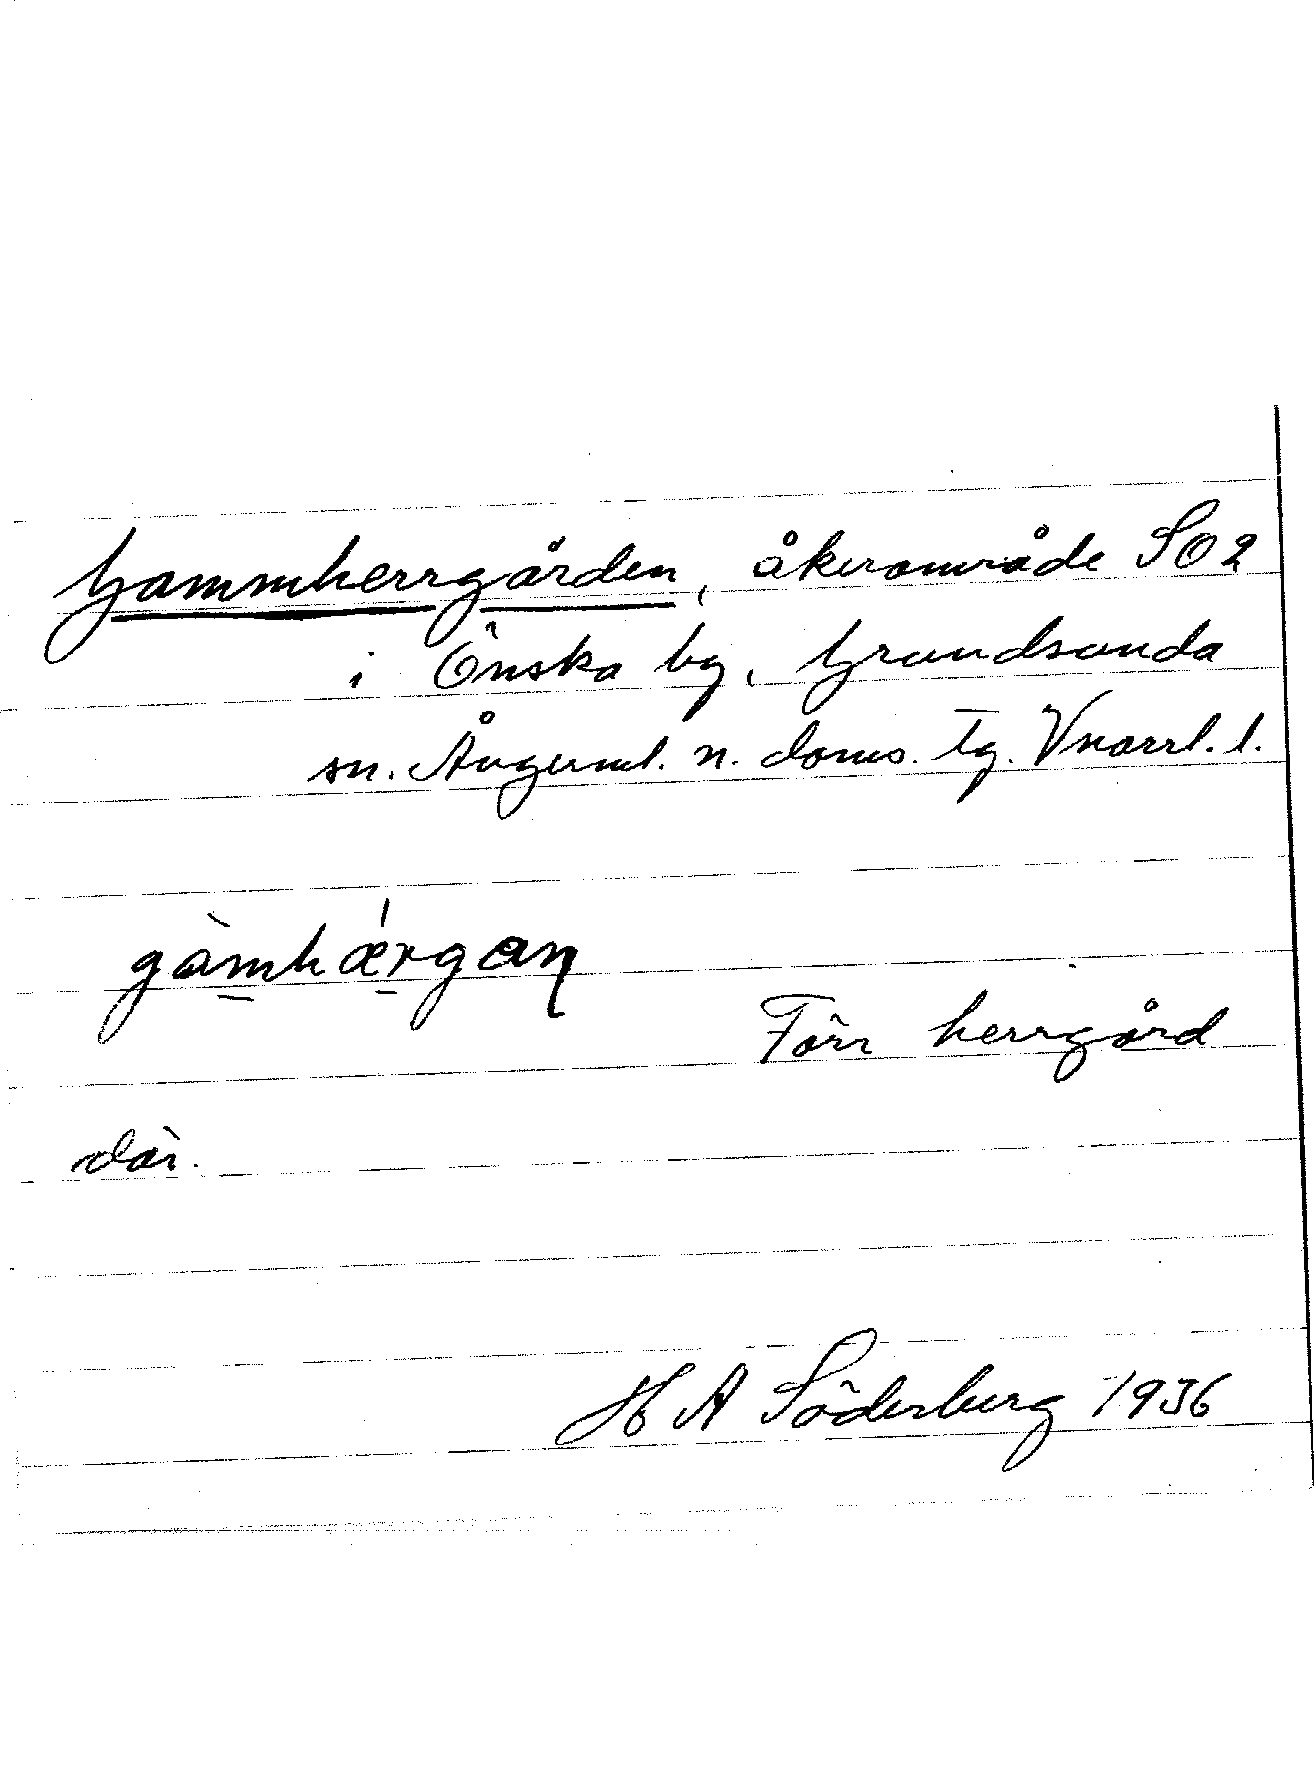 Gammherrgården, åkerområde SO2
i Önska by, Grundsunda
sn. Ångerml. n. doms. tg. Vnorrl. l.
gàmhǽrgaṇ
Förr herrgård
där.
H A Söderberg 1936